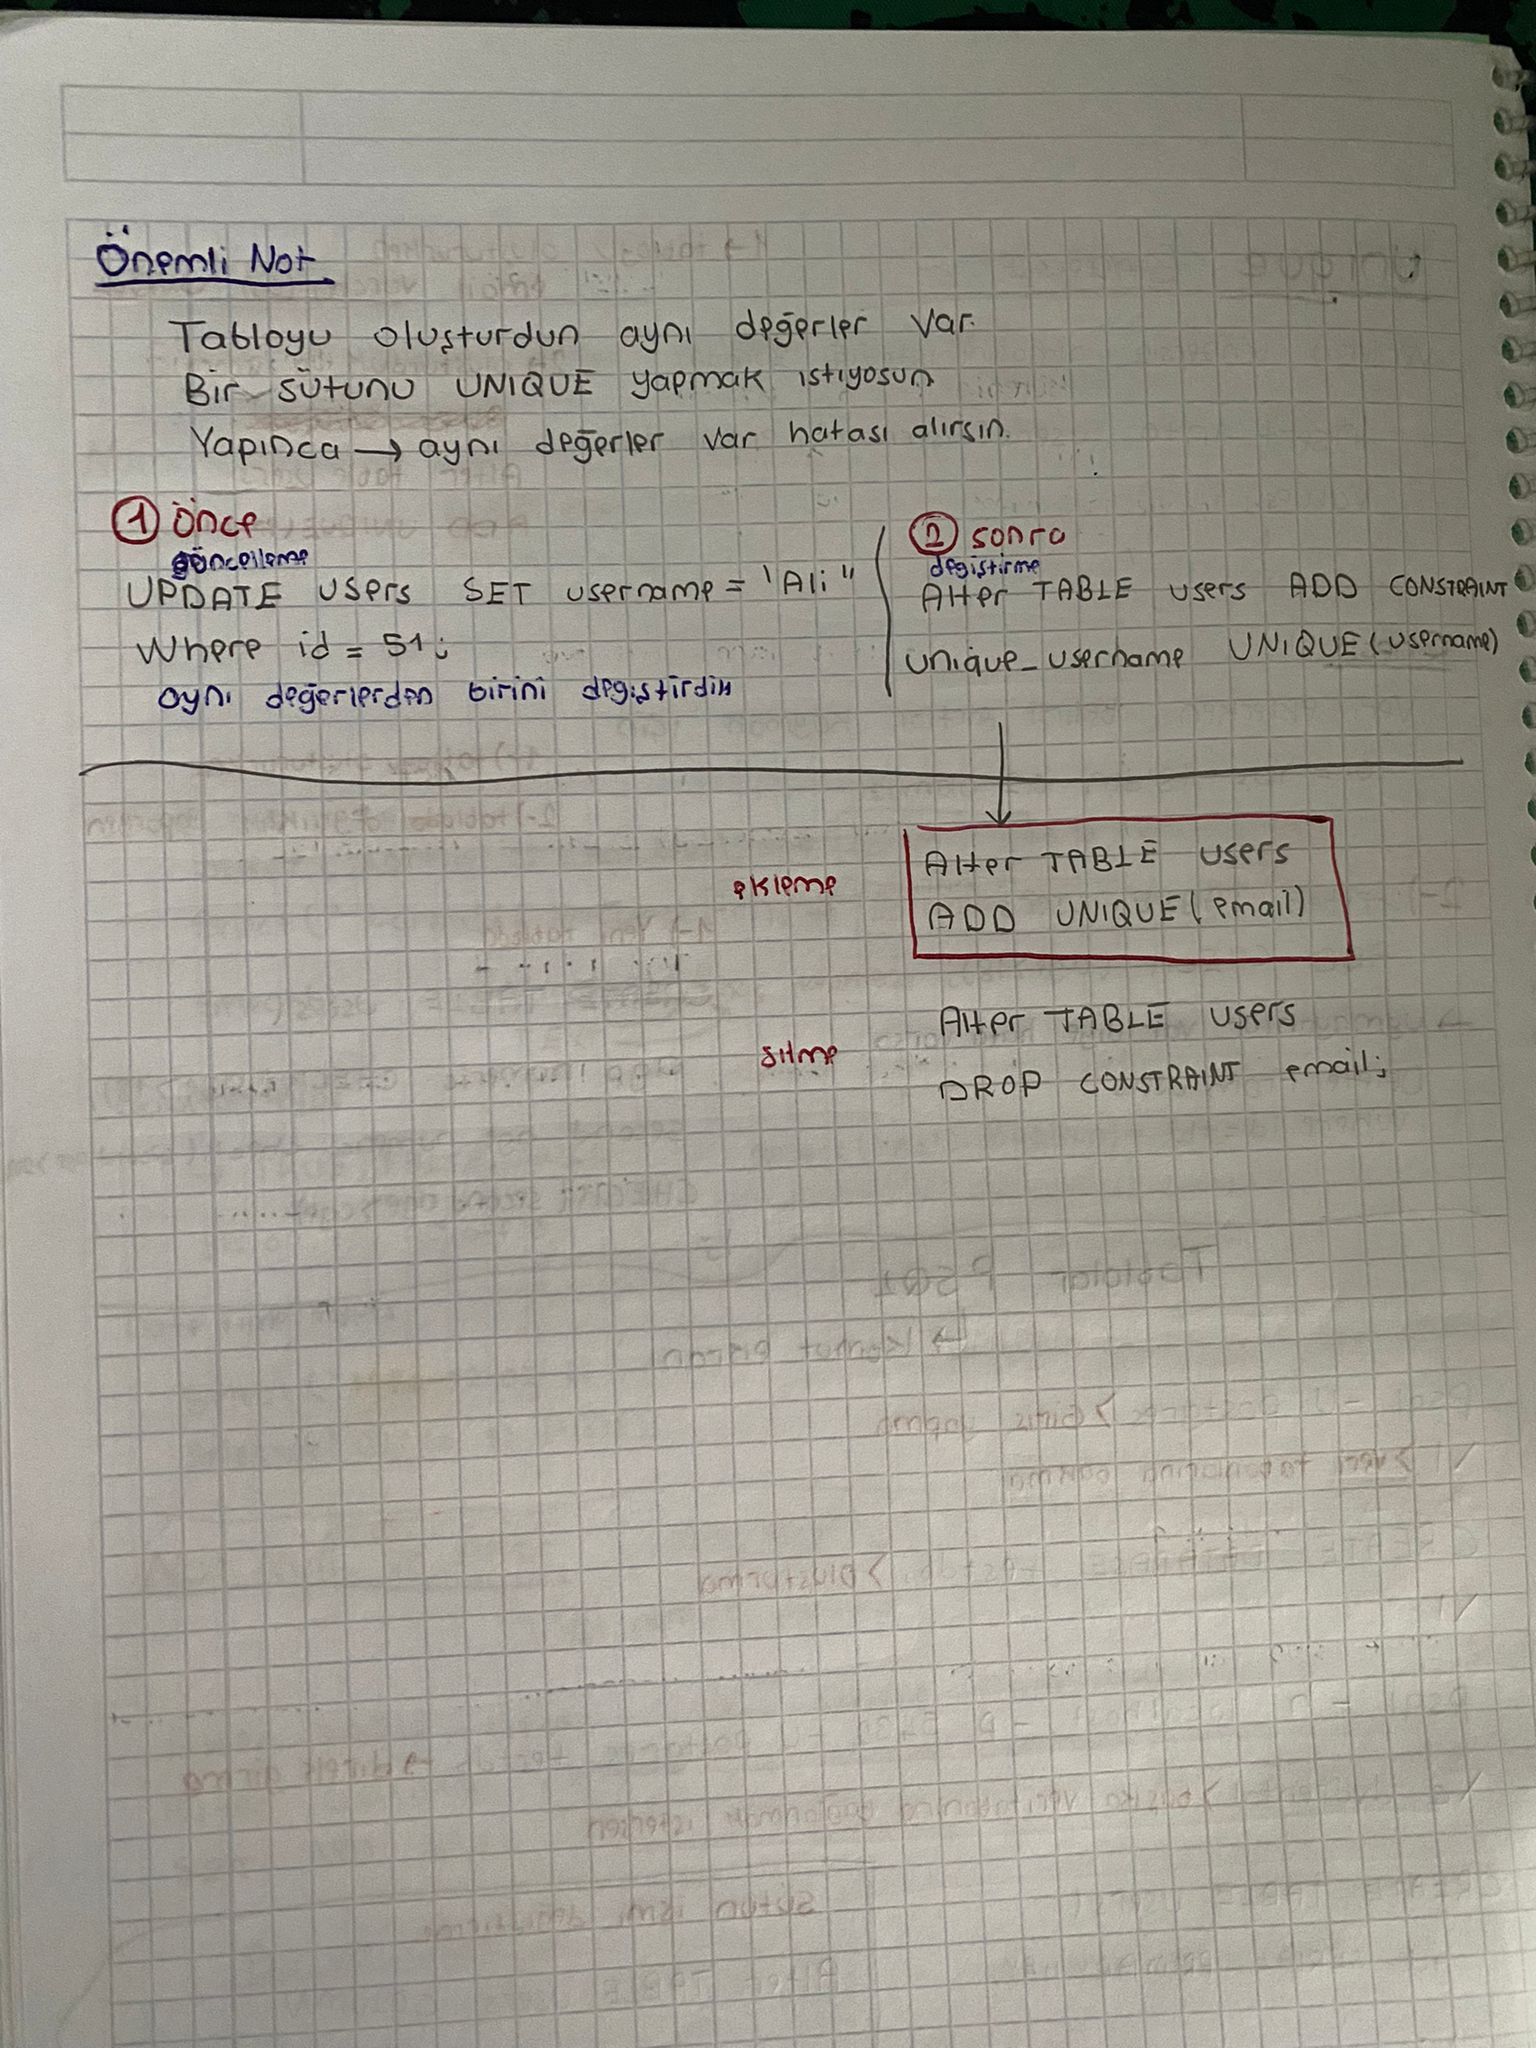 Önemli Not
Tabloyu oluşturdun aynı değerler var.
Bir sütunu UNIQUE yapmak istiyosun
Yapınca → aynı değerler var hatası alırsın.
1 Önce
güncelleme
UPDATE users SET username = "Ali"
Where id = 51;
aynı değerlerden birini değiştirdik
2 sonra
değiştirme
Alter TABLE users ADD CONSTRAINT
unique_username UNIQUE(username)
ekleme
Alter TABLE users
ADD UNIQUE(email)
silme
Alter TABLE users
DROP CONSTRAINT email;